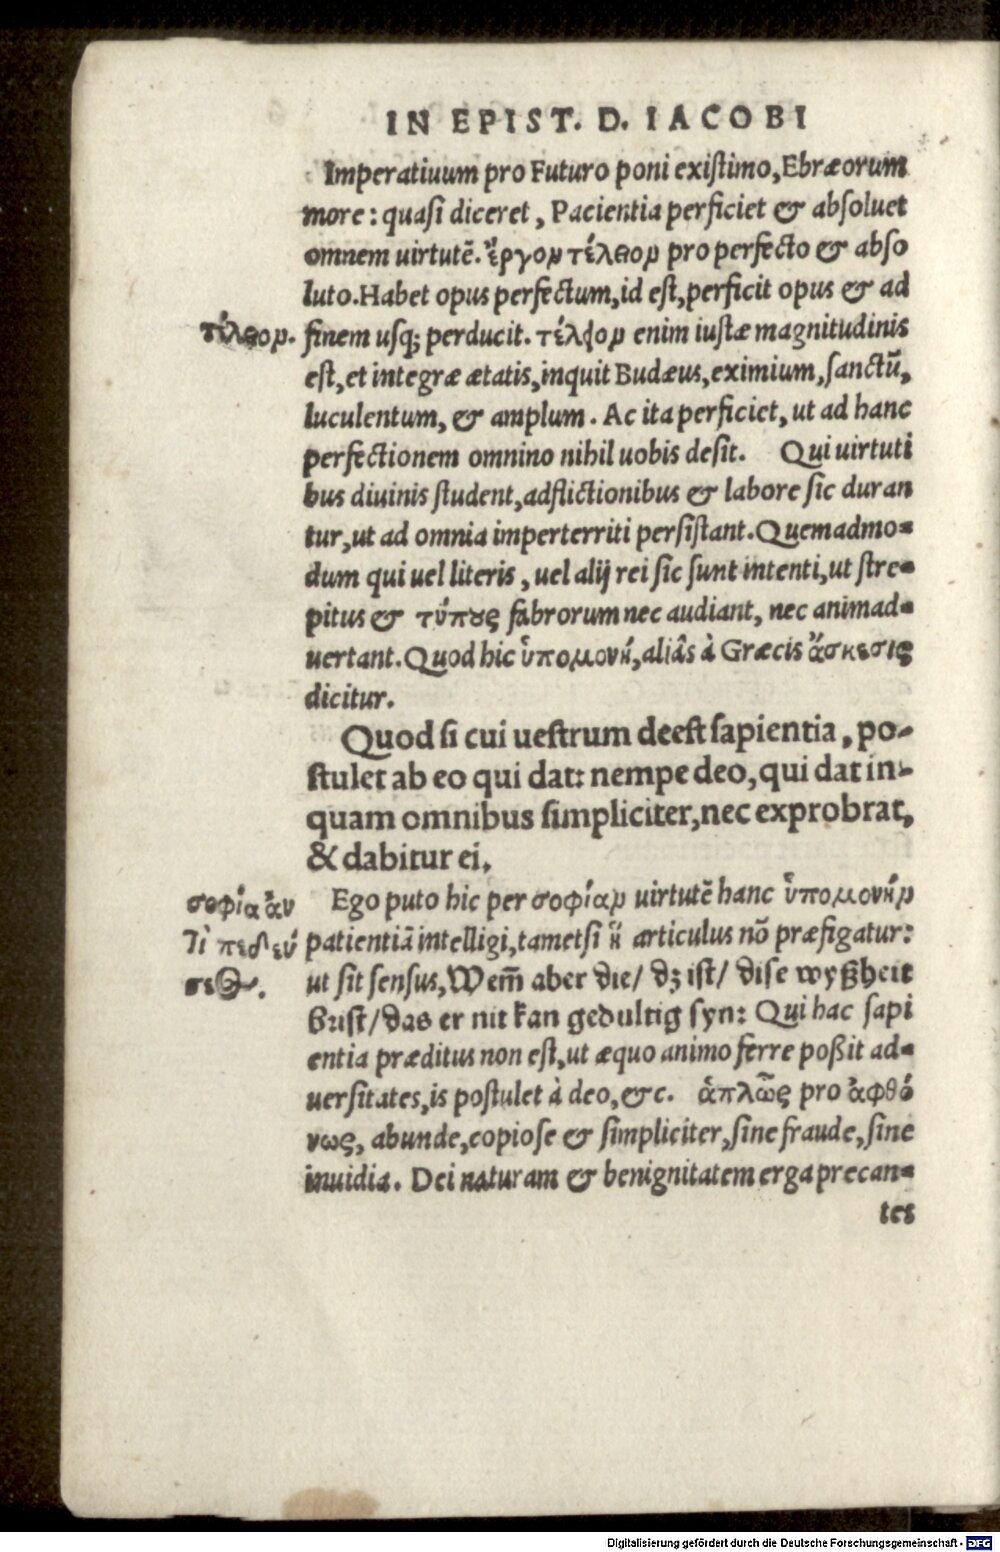 IN EPIST. D. IACOBI
Imperatiuum pro Futuro poni existimo, Ebræorum
more: quasi diceret, Pacientia perficiet & absoluet
omnem uirtutē. ἔργον τέλεον pro perfecto & abso
luto. Habet opus perfectum, id est, perficit opus & ad
τέλεον.
finem usq; perducit. τέλειον enim iustæ magnitudinis
est, et integræ ætatis, inquit Budæus, eximium, sanctū,
luculentum, & amplum. Ac ita perficiet, ut ad hanc
perfectionem omnino nihil uobis desit. Qui uirtuti
bus diuinis student, adflictionibus & labore sic duran
tur, ut ad omnia imperterriti persistant. Quemadmo-
dum qui uel literis, uel alij rei sic sunt intenti, ut stre-
pitus & τύπους fabrorum nec audiant, nec animad-
uertant. Quod hic ὑπομονή, aliâs à Græcis ἄσκεσις
dicitur.
Quod si cui uestrum deest sapientia, po-
stulet ab eo qui dat: nempe deo, qui dat in-
quam omnibus simpliciter, nec exprobrat,
& dabitur ei.
σοφία ἀν
τὶ
Ego puto hic per σοφίαν uirtutē hanc ὑπομονήν
patientiā intelligi, tametsi ἡ articulus nō præfigatur:
ut sit sensus, Wem̄ aber die/ dz ist/ dise wyßheit
brist/ das er nit kan gedultig syn: Qui hac sapi
entia præditus non est, ut æquo animo ferre poßit ad-
uersitates, is postulet à deo, &c. ἁπλῶς pro ἀφθό
νως, abunde, copiose & simpliciter, sine fraude, sine
inuidia. Dei naturam & benignitatem erga precan-
tes
Digitalisierung gefördert durch die Deutsche Forschungsgemeinschaft - DFG